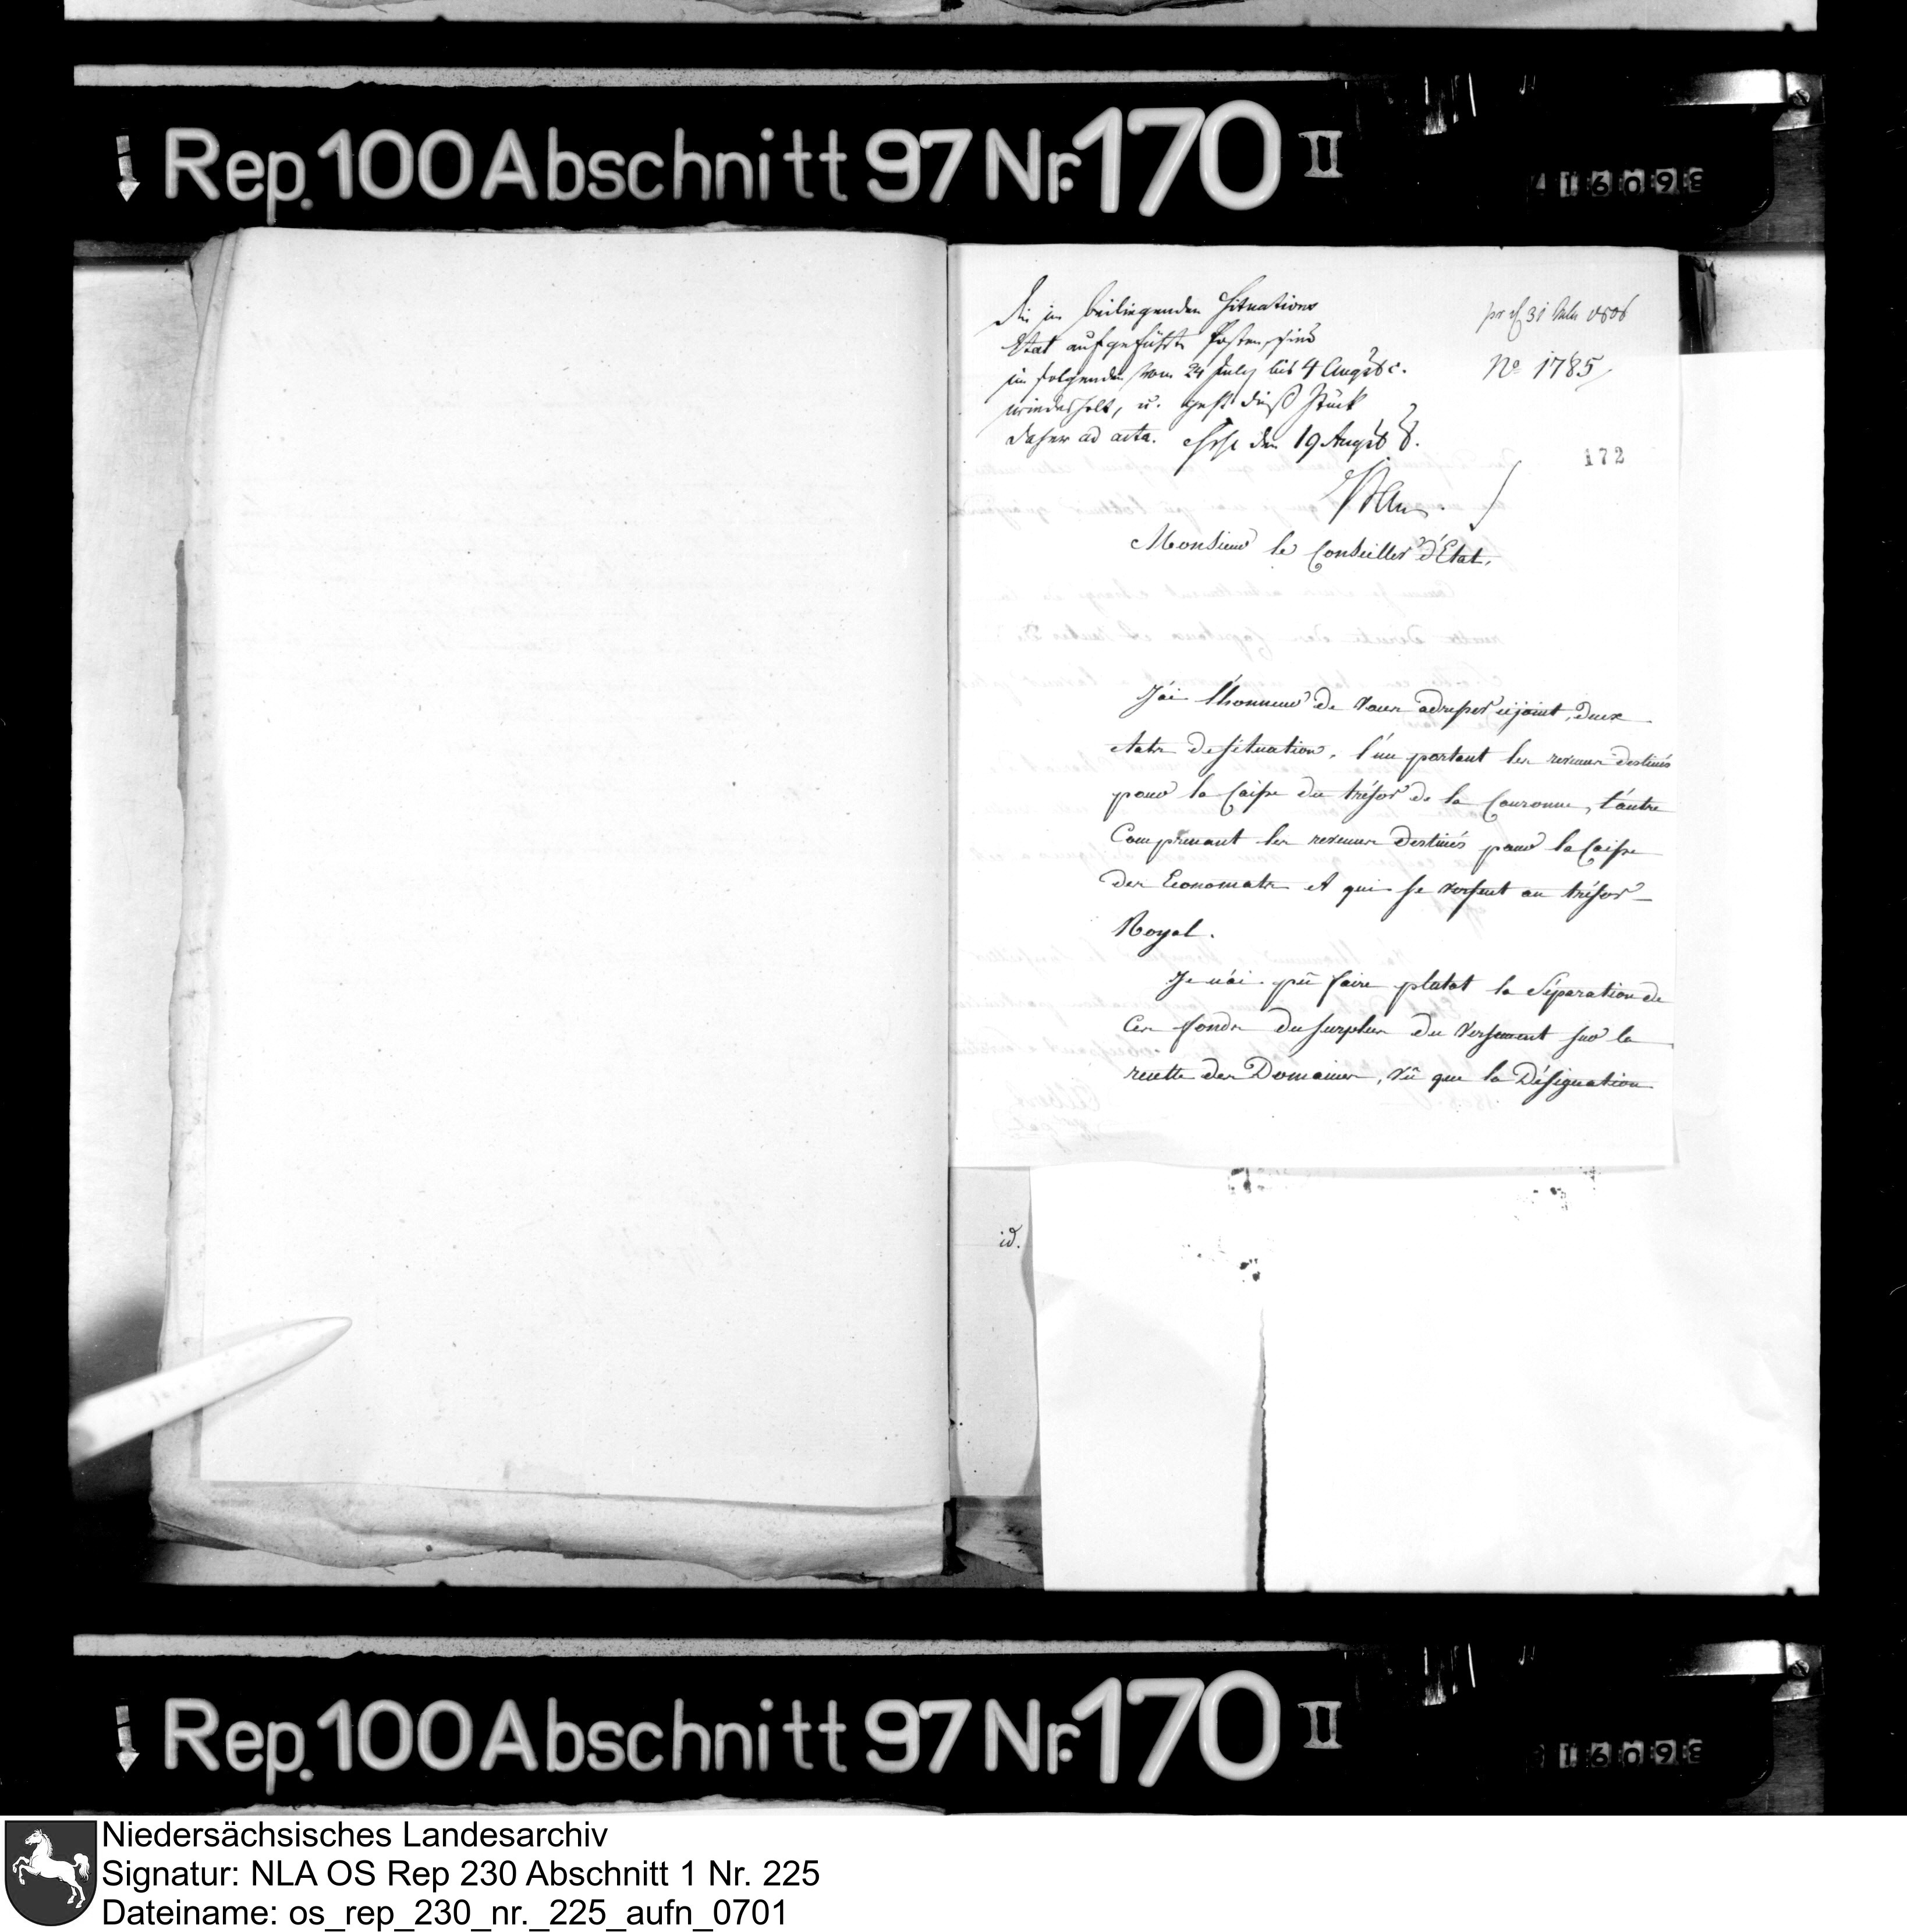 Rep. 100 Abschnitt 97 Nr. 170 II
416098
Die im beiliegenden Situations
Etat aufgeführte Posten, sind
im folgenden vom 24 July bis 4 Augst c.
wiederholt, u. geht dieß Stück
daher ad acta. den 19 Augst 8.
No 1785
172
Monsieur le Conseiller d'Etat,
J'ai l'honneur de vous adresser cijoint, deux
etats de situation, l'un portant les revenus destinés
pour la Caisse du trésor de la Couronne, l'autre
Comprenant les revenus destinés pour la Caisse
des Economats et qui se versent au trésor
Royal.
Je n'ai pû faire plutot la Séparation de
Ces fonds du surplus du Versement sur la
recette des Domaines, vû que la Désignation
id.
Rep. 100 Abschnitt 97 Nr. 170 II
416098
Niedersächsisches Landesarchiv
Signatur: NLA OS Rep 230 Abschnitt 1 Nr. 225
Dateiname: os_rep_230_nr._225_aufn_0701